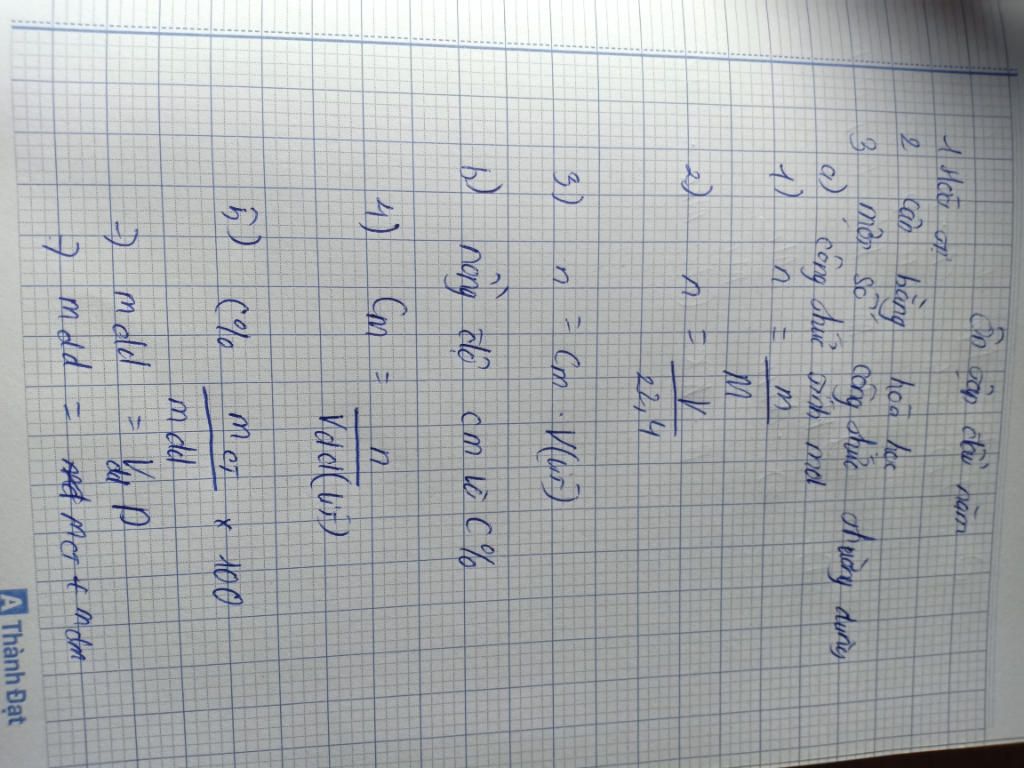 Ôn tập đầu năm
1 Hoá trị
2 cân bằng hoá học
3 một số công thức thường dùng
a) công thức tính mol
1) n = m / M
2) n = V / 22,4
3) n = Cm . V(lít)
b) nồng độ cm và C%
4) Cm = n / Vdd(lít)
5) C% m CT / mdd × 100
=) mdd = Vdd D
=) mdd = mCT + mdm
A Thành Đạt